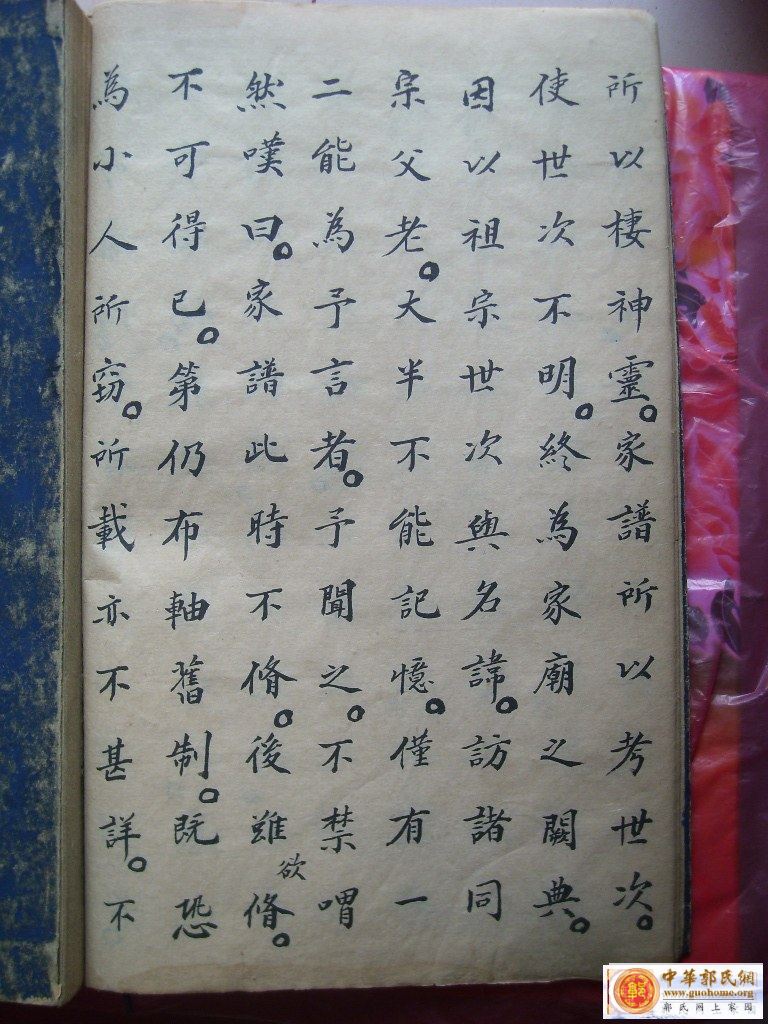 所以棲神靈。家譜所以考世次。
使世次不明。終為家廟之闕典。
因以祖宗世次與名諱。訪諸同
宗父老。大半不能記憶。僅有一
二能為予言者。予聞之。不禁喟
然嘆曰。家譜此時不脩。後雖欲脩。
不可得已。第仍布軸舊制。既恐
為小人所窃。所載亦不甚詳。不
中華郭氏網
www.guohome.org
郭氏网上家园